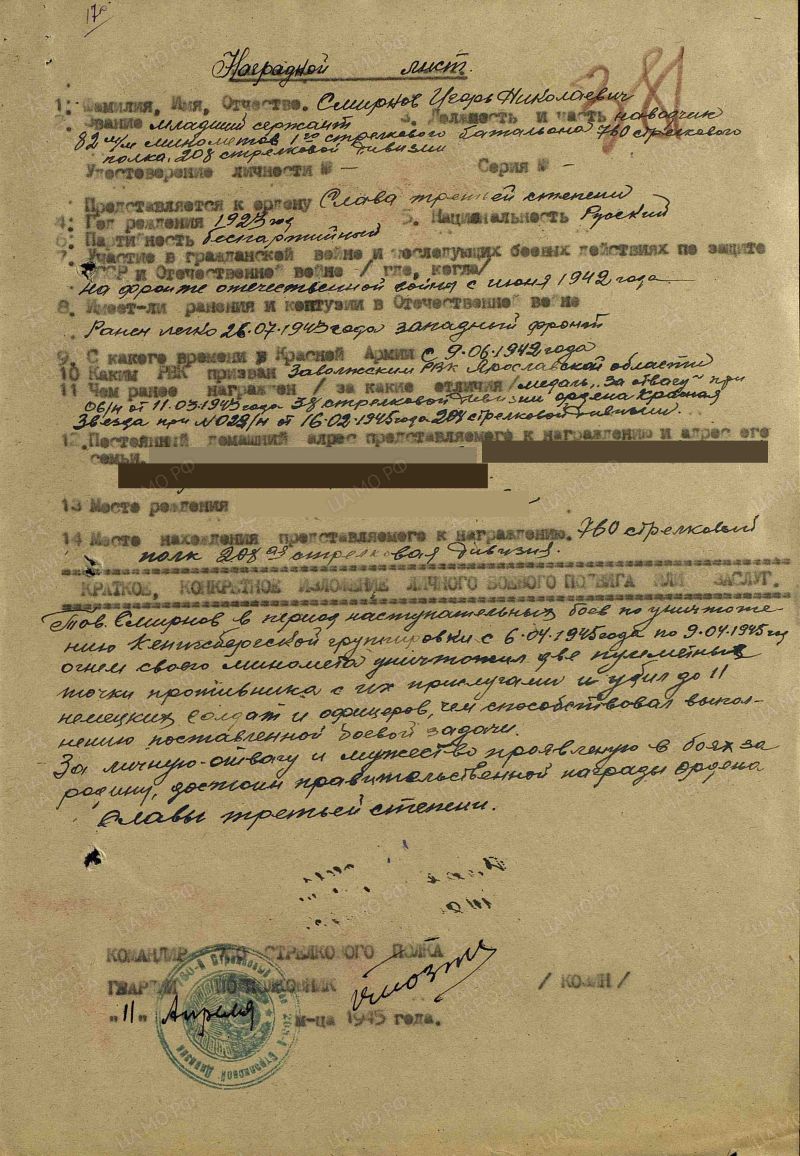 17
381
Наградной лист.
1. Фамилия, Имя, Отчество. Смирнов Игорь Николаевич
2. Звание младший сержант 3. Должность и часть наводчик
82 м/м минометов 1го стрелкового батальона 760 стрелкового
полка, 208 стрелковой дивизии
Удостоверение личности № - Серия № -
Представляется к ордену Слава третьей степени
4. Год рождения 1923 год 5. Национальность Русский
6. Партийность беспартийный
7. Участие в гражданской войне и последующих боевых действиях по защите
СССР и Отечественной войне / где, когда/
на фронте отечественной войны с июня 1942 года
8. Имеет-ли ранения и контузии в Отечественной войне
Ранен легко 26.07.1943 года западный фронт
9. С какого времени в Красной Армии с 9.06.1942 года
10 Каким РВК призван Заволжским РВК Ярославской области
11 Чем ранее награжден / за какие отличия/ медаль „За отвагу" пр
06/н от 11.03.1943 года стрелковой дивизии, ордена Красная
Звезда пр № 022/н от 16.02.1945 года 208 стрелковой дивизии.
12. Постоянный домашний адрес представляемого к награждению и адрес его
семьи.
13 Место рождения
14 Место нахождения представляемого к награждению. 760 стрелковый
полк 208 ая стрелковая дивизия.
КРАТКОЕ, КОНКРЕТНОЕ ИЗЛОЖЕНИЕ ЛИЧНОГО БОЕВОГО ПОДВИГА ИЛИ ЗАСЛУГ.
Тов. Смирнов в период наступательных боев по уничтоже
нию Кенигсбергской группировки с 6.04.1945 года по 9.04.1945 год
огнем своего миномета уничтожил две пулеметные
точки противника с их прислугами и убил до 11
немецких солдат и офицеров, чем способствовал выпол-
нению поставленной боевой задачи.
За личную отвагу и мужество проявленую в боях за
родину, достоин правительственной награды ордена
Славы третьей степени.
КОМАНДИР 760 СТРЕЛКОВОГО ПОЛКА
ГВАРДИИ ПОДПОЛКОВНИК / КОЗИН /
"11" Апреля м-ца 1945 года.
760-й Стрелковый Полк 208-й Стрелковой Дивизии
ЦАМО.РФ